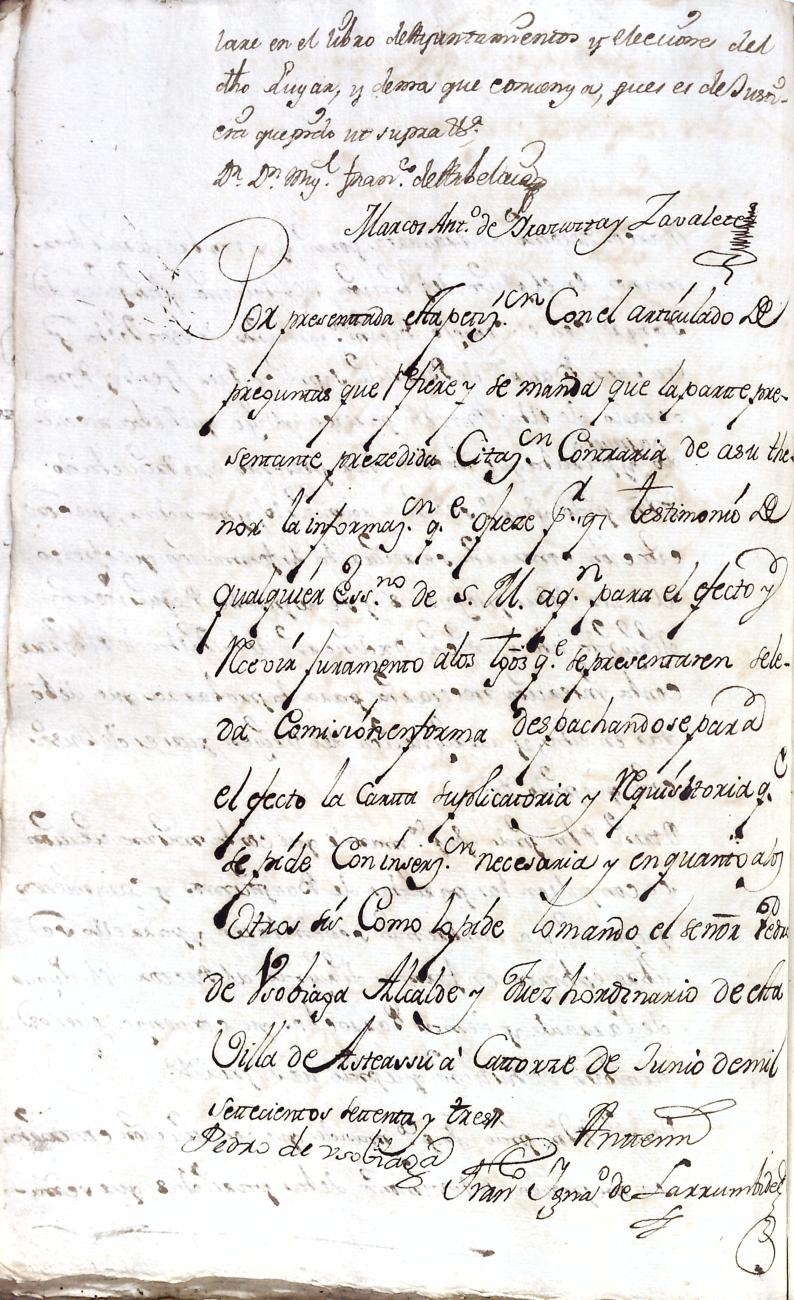 lare en el libro de Ayuntamientos y elecciones del
dho Lugar, y demas que convenga, pues es de Justi-
cia que pido ut supra &a
Dn. Dn. Mig.l Fran.co de Arbelaiz
Marcos Ant.o de y Zavalete
Por presentada esta petiz.on Con el articulado de
preguntas que Refiere y se manda que la parte pre-
sentante prezedida Citaz.on Contraria de a su the-
nor la informaz.on q.e ofreze p.r testimonio de
qualquier Ess.no de S. M. aq.n para el efecto y
Recevir Juramento a los tgos q.e se presentaren sele-
da Comision en forma despachandose para
el efecto la Carta suplicatoria y Requisitoria q.e
se pide Con inserz.on necesaria y en quanto a los
Otros sis Como lo pide lo mando el señor Pedro
de Vsobiaga Alcalde y Juez hordinario de esta
Villa de Asteassu à Cattorze de Junio de mil
settecientos settenta y tres
Anttemi
Pedro de Vsobiaga
Fran.co Ignaº de Larrumbide